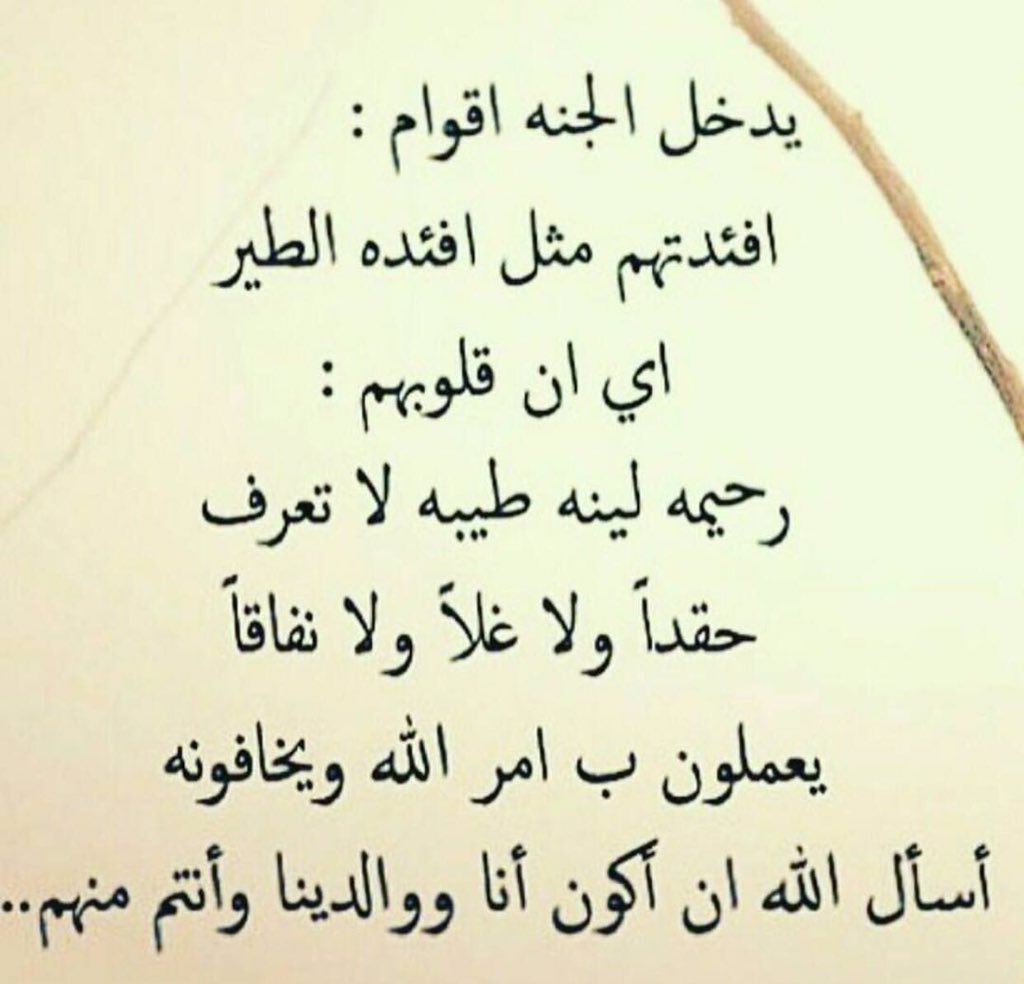 يدخل الجنه اقوام :
افئدتهم مثل افئده الطير
اي ان قلوبهم :
رحيمه لينه طيبه لا تعرف
حقداً ولا غلاً ولا نفاقاً
يعملون ب امر الله ويخافونه
أسأل الله ان أكون أنا ووالدينا وأنتم منهم..